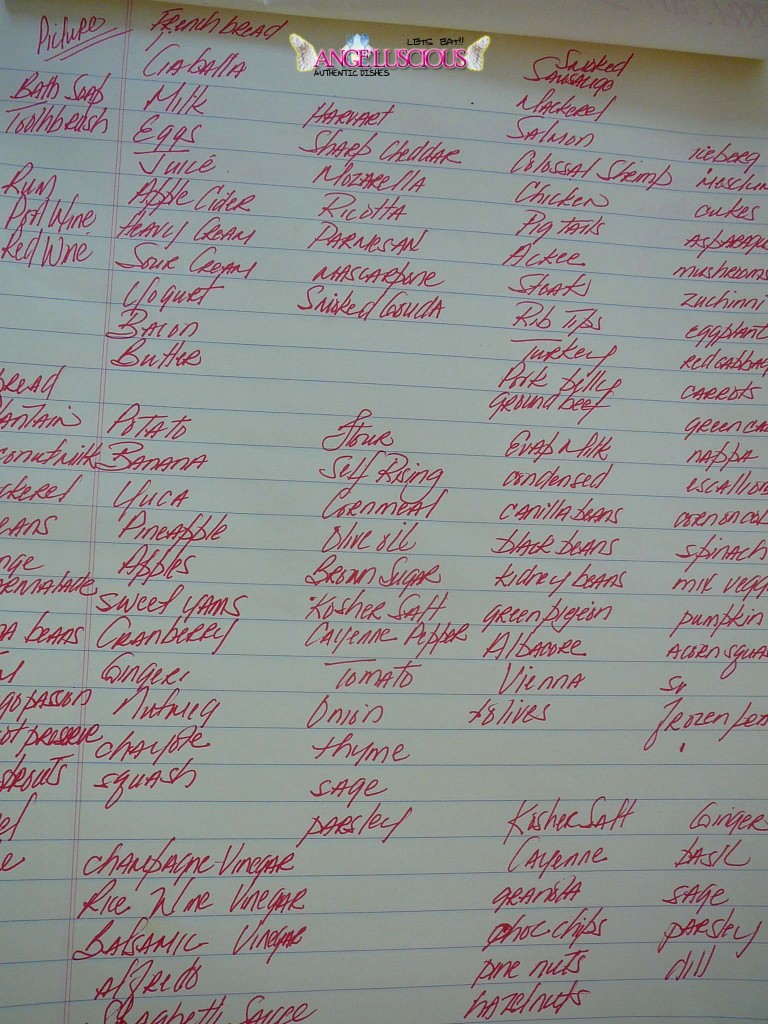 Pictures
Bath Soap
Toothbrush
Rum
Port Wine
Red Wine
French bread
Ciaballa
Milk
Eggs
Juice
Apple Cider
Heavy Cream
Sour Cream
Yogurt
Bacon
Butter
LETS EAT!!
ANGELUSCIOUS
AUTHENTIC DISHES
Havart
Sharp Cheddar
Mozarella
Ricotta
Parmesan
mascarpone
Smoked Gouda
Smoked
Sausage
Mackerel
Salmon
Colossal Shrimp
Chicken
Pig tails
Ackee
Steaks
Rib Tips
Turkey
Pork belly
ground beef
iceberg
cukes
mushrooms
zuchinni
eggplant
red cabbag
carrots
nappa
escallio
corn on cob
spinach
mix vegg
pumpkin
acorn squas
frozen
bread
antain
conutmilk
ckerel
eans
nge
armalade
a beans
go passion
ot preserve
sprouts
Potato
Banana
Yuca
Pineapple
Apples
sweet yams
Cranberry
Ginger
Nutmeg
chayote
squash
Flour
Self Rising
Cornmeal
Olive oil
Brown Sugar
Kosher Salt
Cayenne Pepper
Tomato
Onion
thyme
sage
parsley
Evap Milk
condensed
canilla beans
black beans
kidney beans
green pigeon
Albacore
Vienna
olives
champagne Vinegar
Rice Wine Vinegar
Balsamic Vinegar
alfredo
Spaghetti Sauce
Kosher Salt
Cayenne
granola
choc chips
pine nuts
hazelnuts
Ginger
basil
sage
parsley
dill